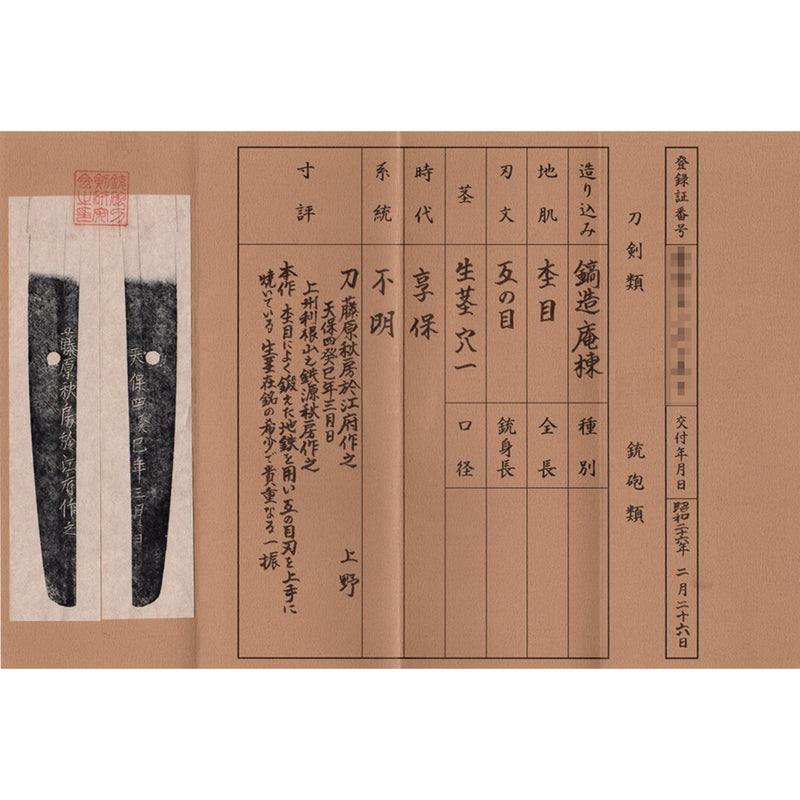 登録証番号
交付年月日
昭和二十六年 二月二十六日
刀剣類
銃砲類
造り込み 鎬造庵棟 種別
地肌 杢目 全長
刃文 互の目 銃身長
茎 生茎 穴一 口径
時代 享保
系統 不明
寸評
刀 藤原秋房於江府作之 上野
天保四癸巳年三月日
上州利根山之鉄源秋房作之
本作 杢目によく鍛えた地鉄を用い 互の目刃を上手に
焼いている 生茎在銘の希少で貴重なる一振
天保四癸巳年三月日
藤原秋房於江府作之